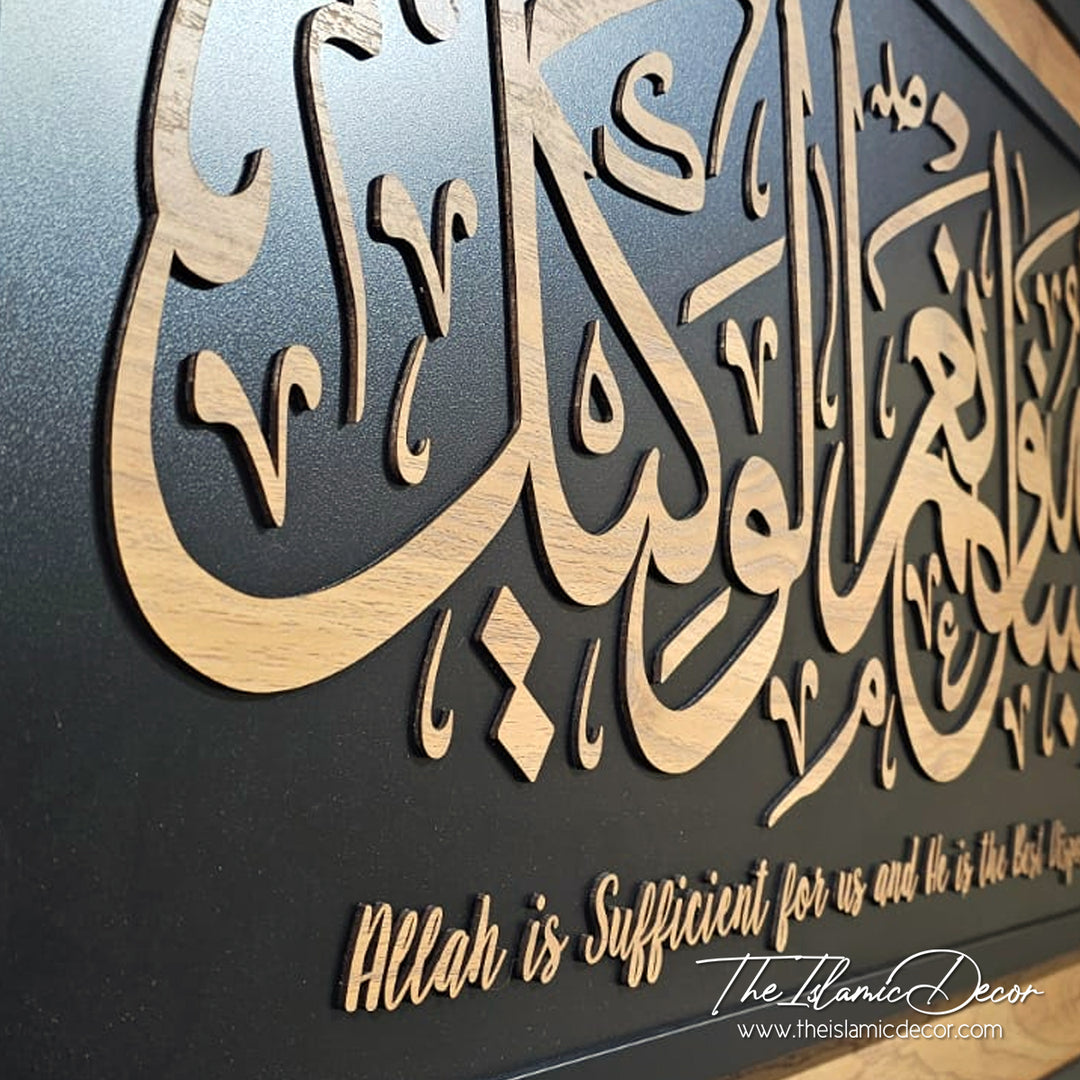 حسبنا الله ونعم الوكيل
Allah is Sufficient for us and He is the Best
The Islamic Decor
www.theislamicdecor.com